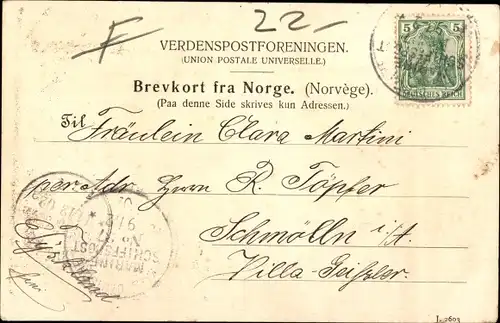 22-
VERDENSPOSTFORENINGEN.
(UNION POSTALE UNIVERSELLE.)
Brevkort fra Norge. (Norvège).
(Paa denne Side skrives kun Adressen.)
Til Fräulein Clara Martini
per. Adr. Herrn R. Töpfer
Schmölln i./A.
Villa-Geißler.
5 5
DEUTSCHES REICH
MARINE
SCHIFFSPOST
No
J. 2603